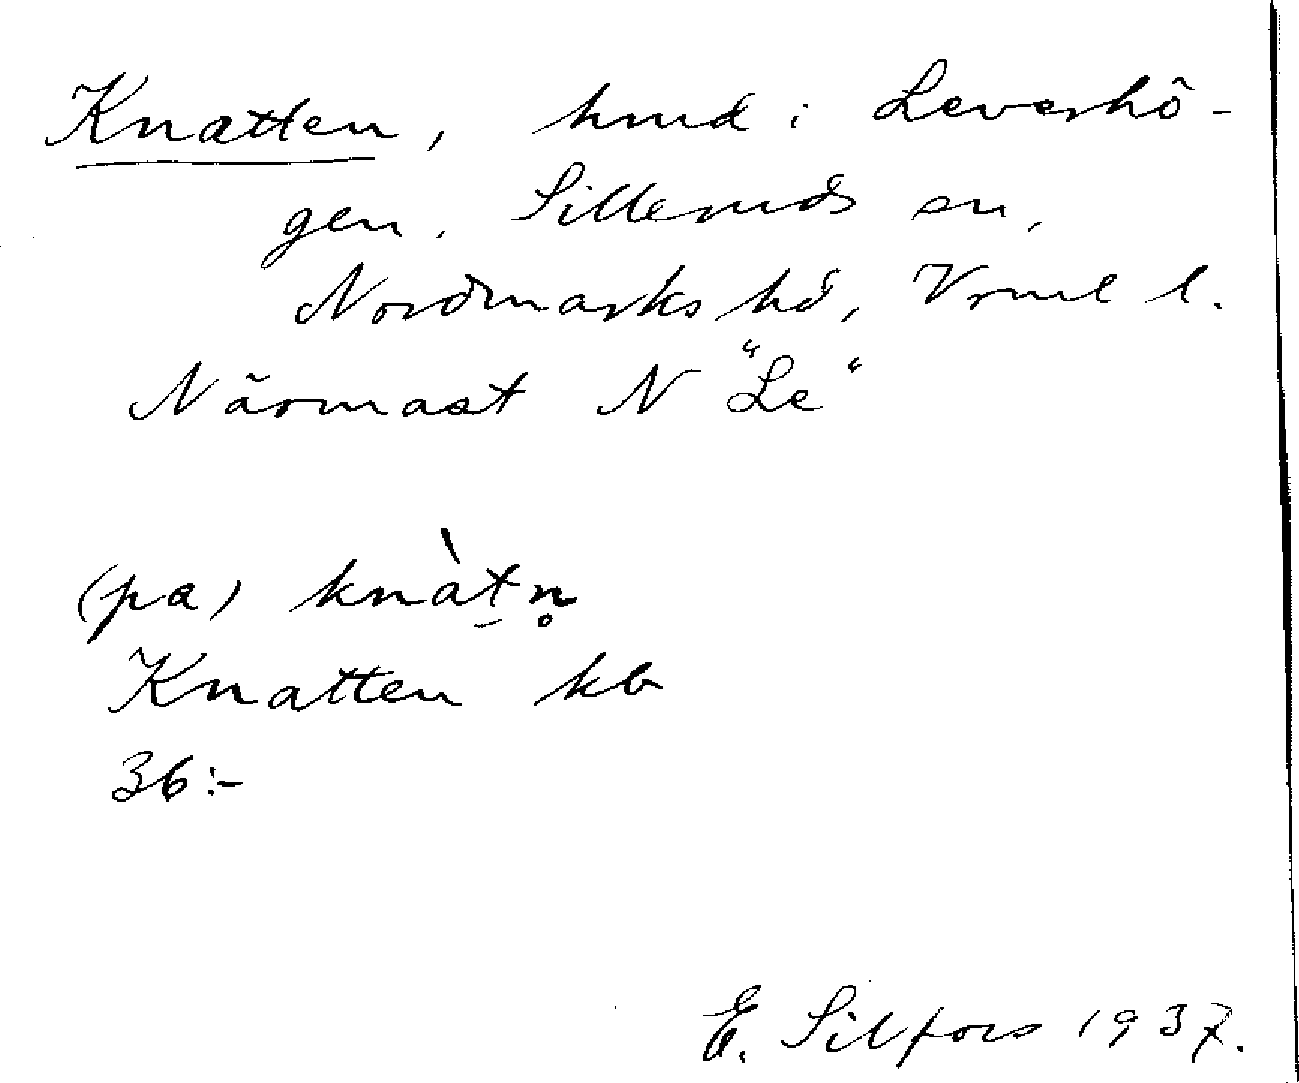 Knatten, hmd i Leverhö-
gen. Silleruds sn,
Nordmarks hd, Vrml l.
Närmast N "Le"
(pa) knàt̠n̥
Knatten kb
36:-
E. Silfors 1937.